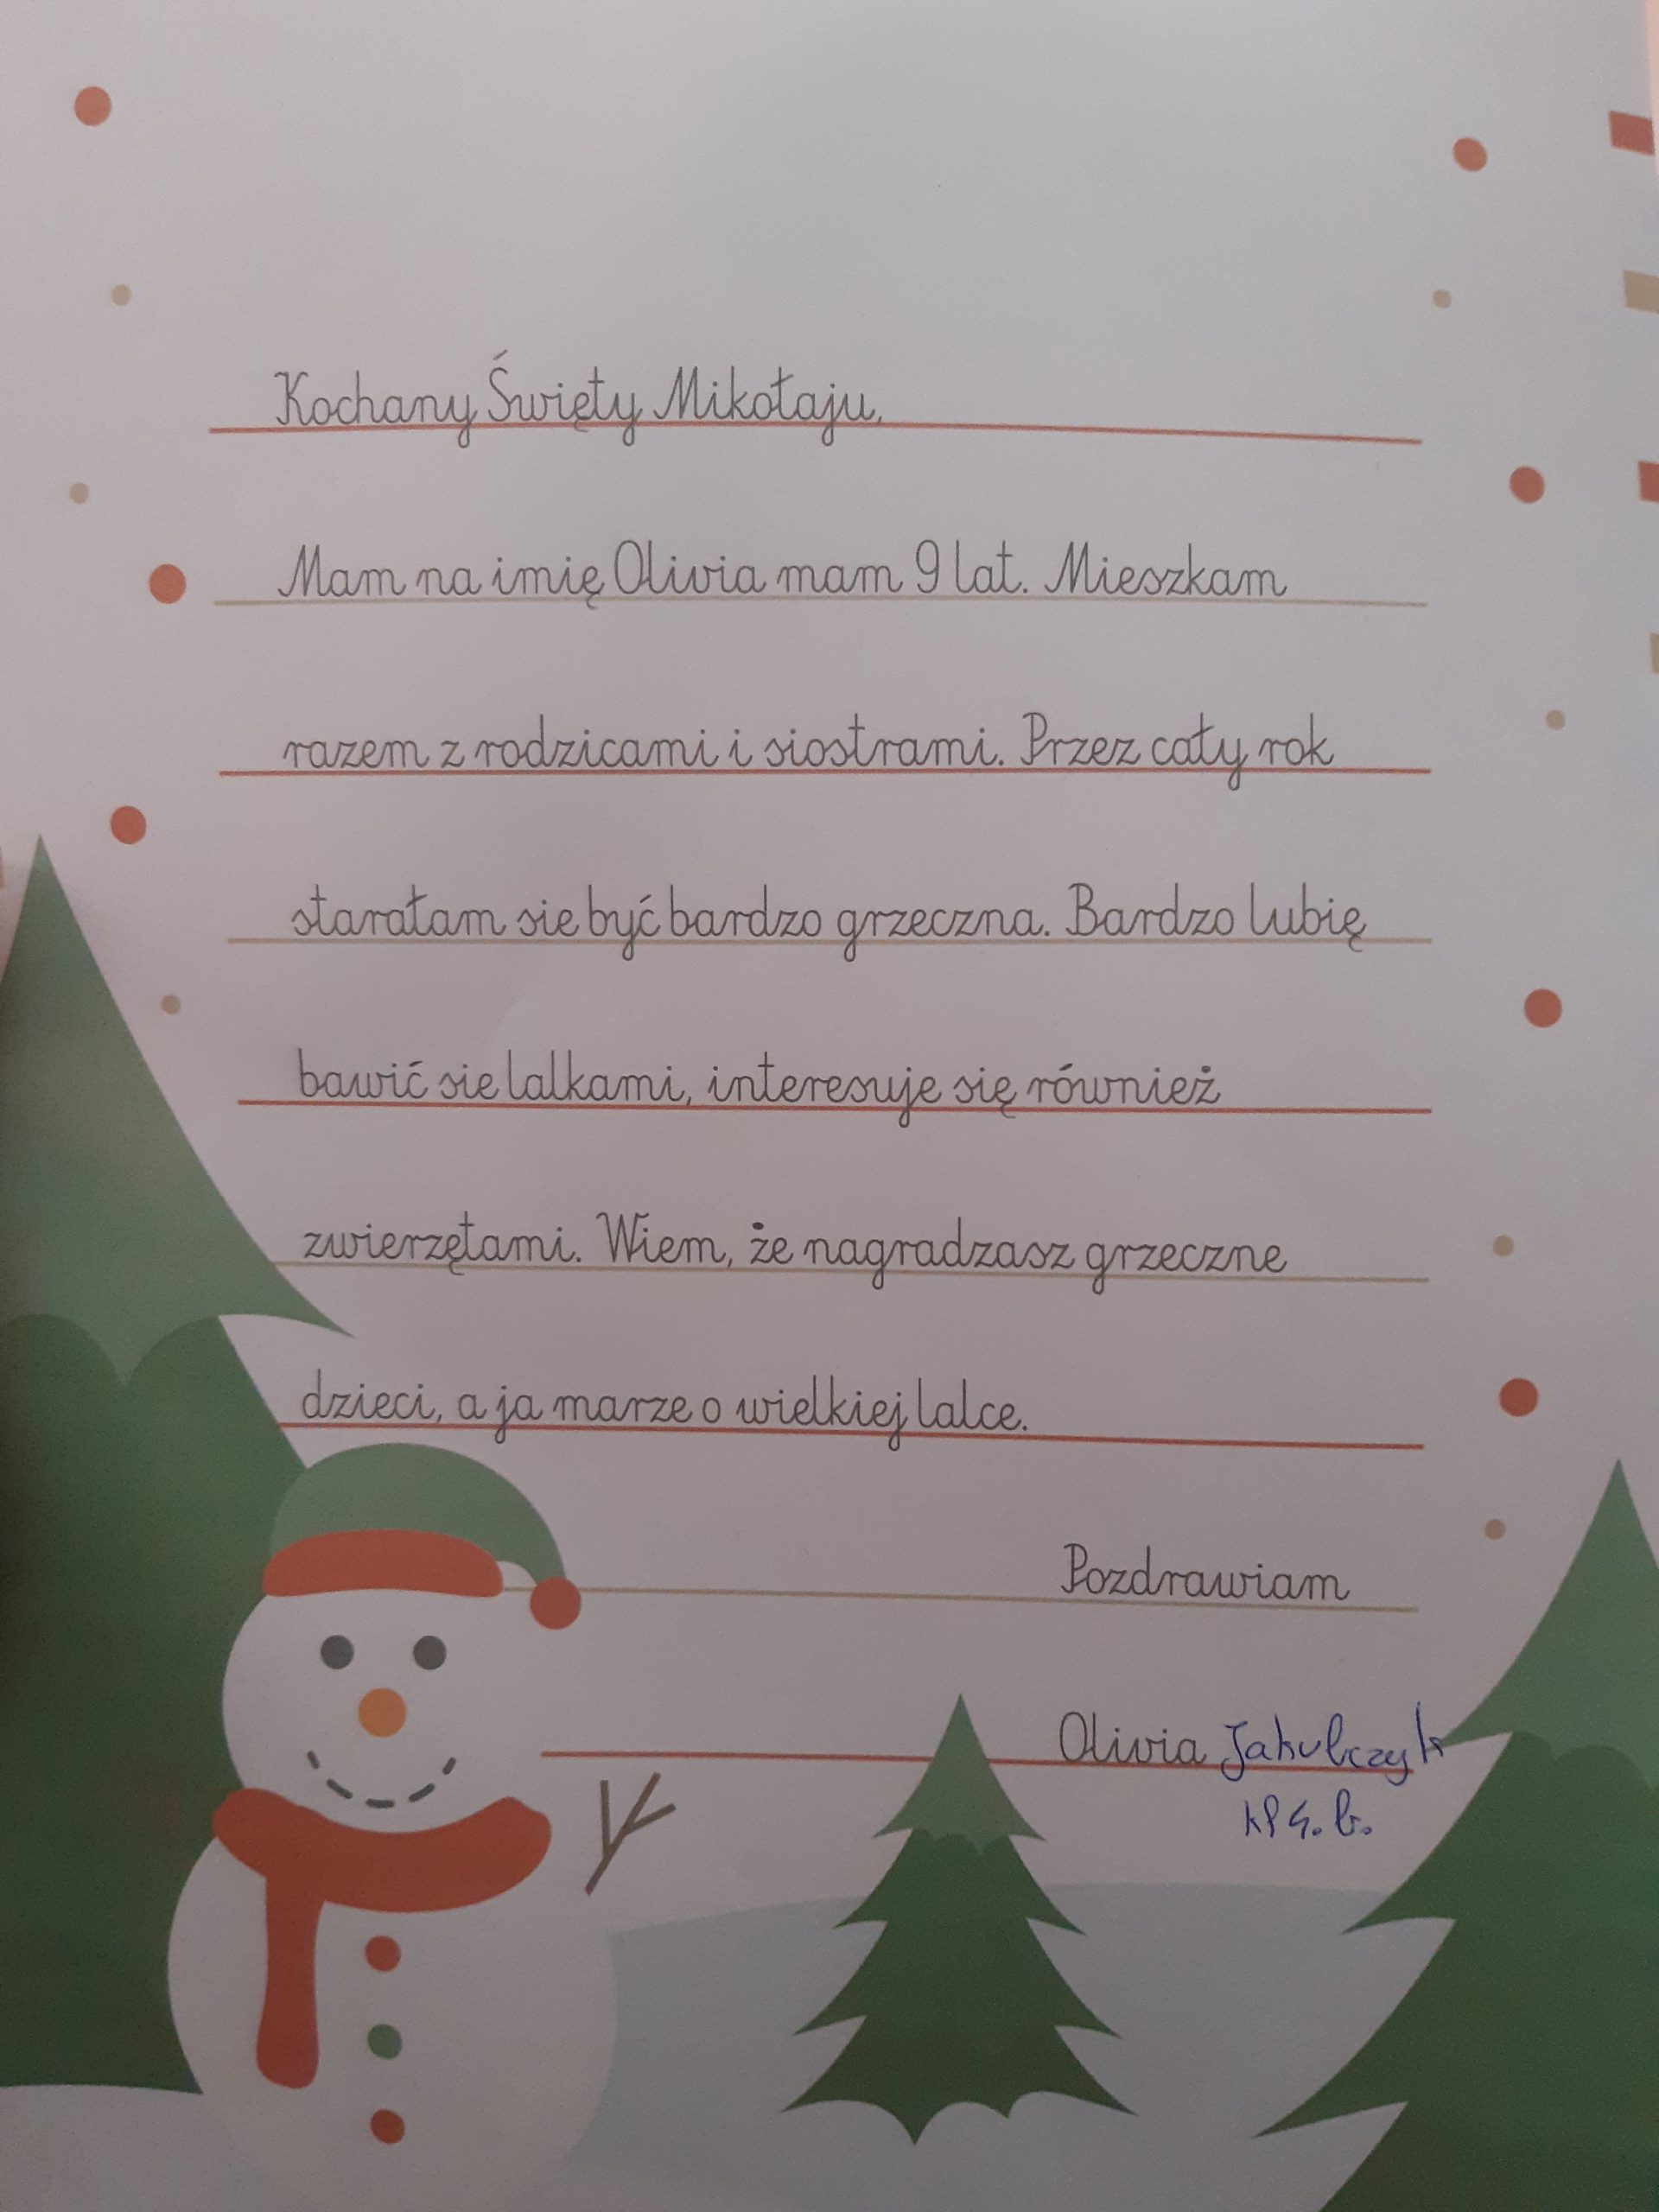 Kochany Święty Mikołaju,
Mam na imię Olivia mam 9 lat. Mieszkam
razem z rodzicami i siostrami. Przez cały rok
starałam sie być bardzo grzeczna. Bardzo lubię
bawić sie lalkami, interesuje się również
zwierzętami. Wiem, że nagradzasz grzeczne
dzieci, a ja marze o wielkiej lalce.
Pozdrawiam
Olivia Jakubczyk